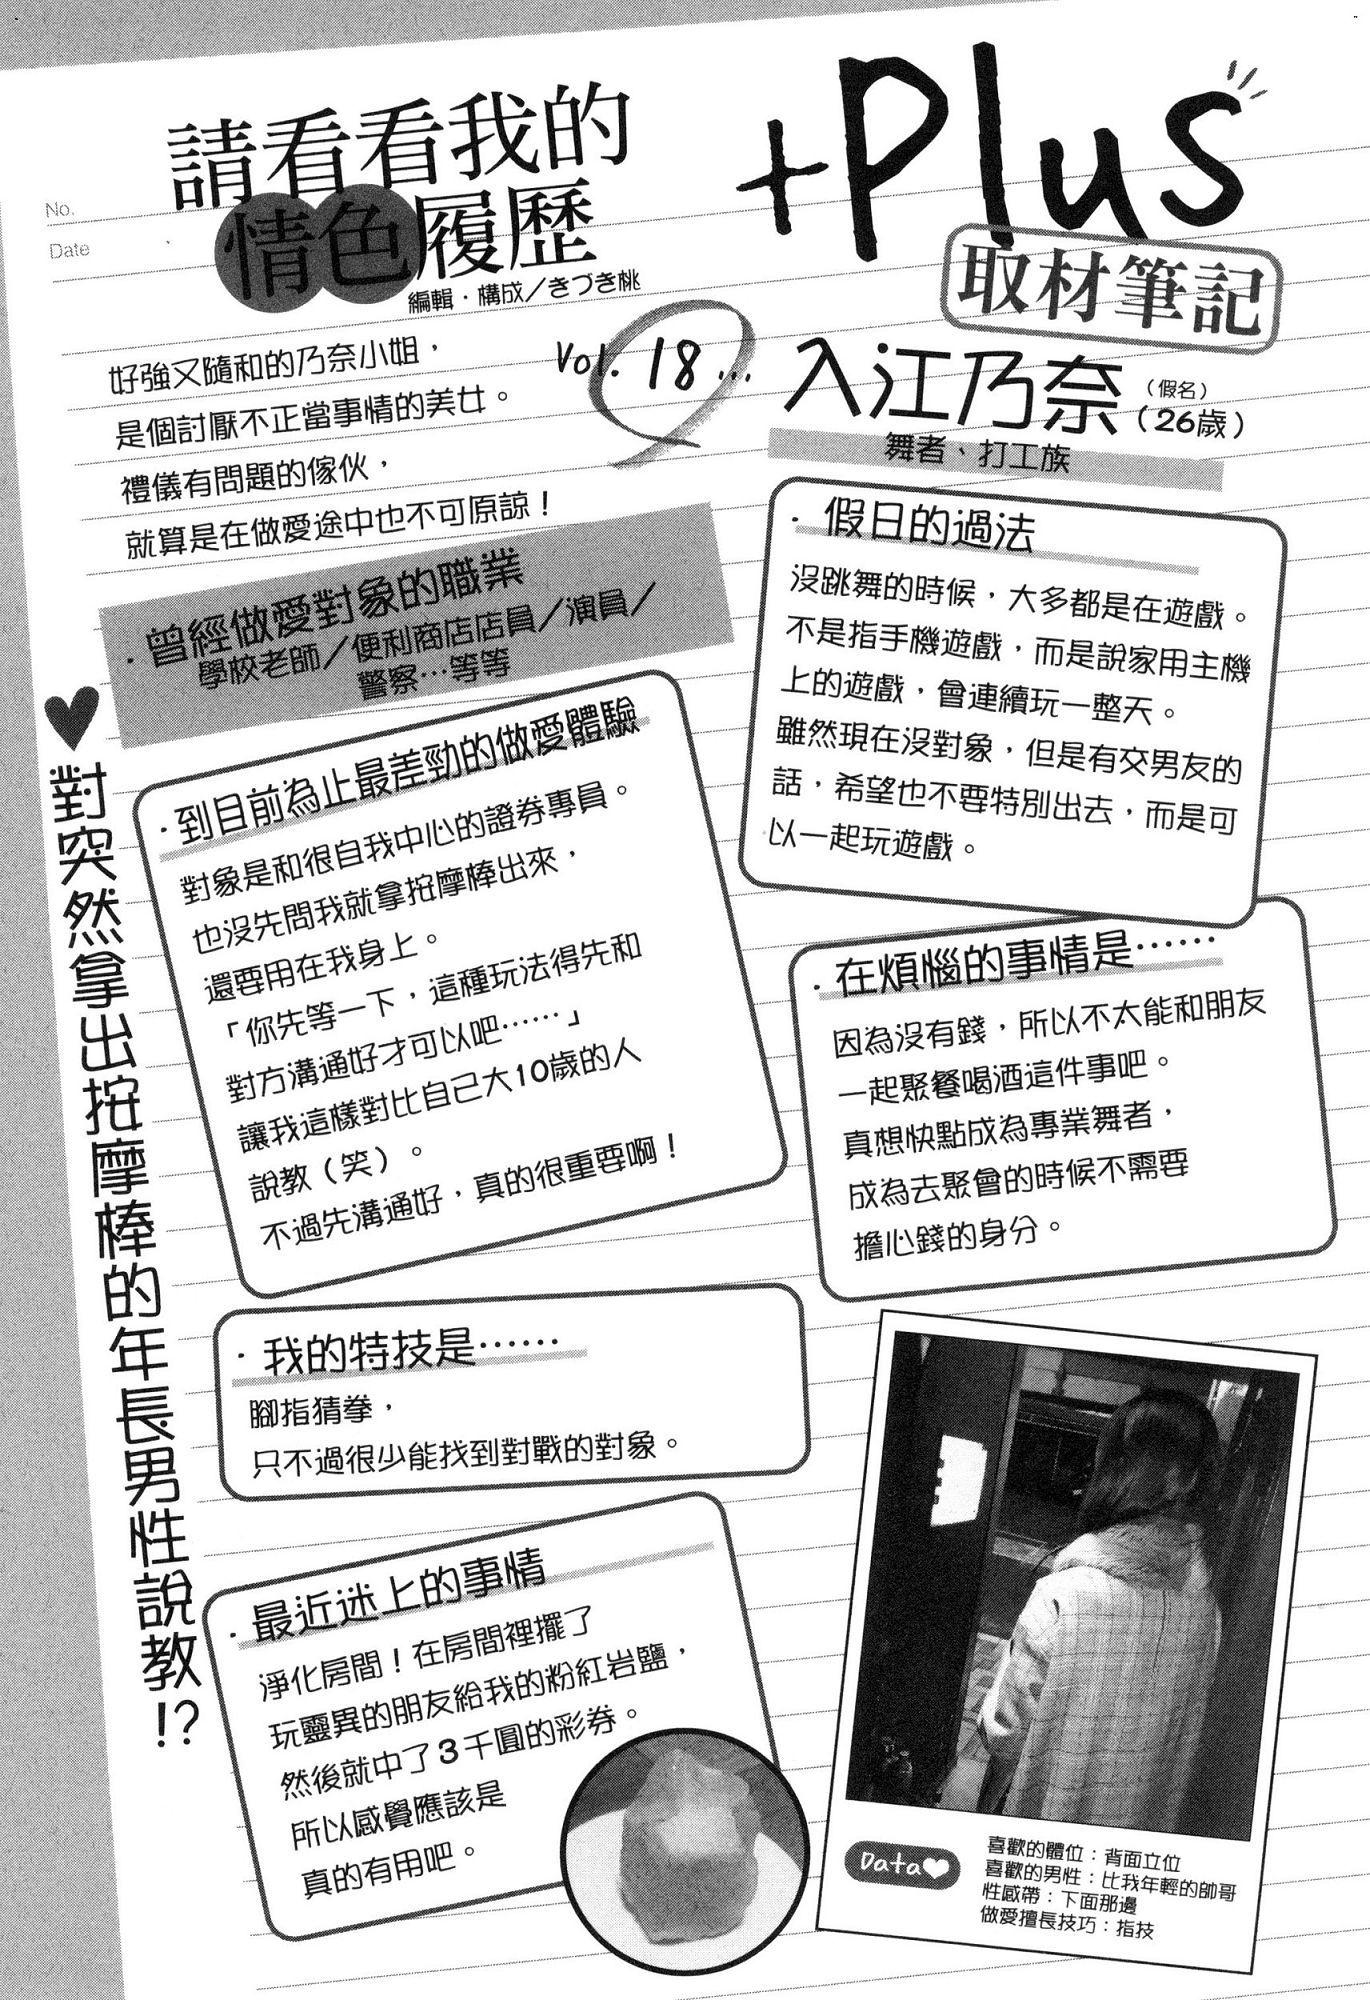 +Plus
取材筆記
請看看我的
情色履歷
編輯・構成／きづき桃
No.
Date
Vol. 18...
入江乃奈
（假名）
（26歲）
舞者、打工族
好強又隨和的乃奈小姐，
是個討厭不正當事情的美女。
禮儀有問題的傢伙，
就算是在做愛途中也不可原諒！
・曾經做愛對象的職業
學校老師／便利商店店員／演員／
警察…等等
・假日的過法
沒跳舞的時候，大多都是在遊戲。
不是指手機遊戲，而是說家用主機
上的遊戲，會連續玩一整天。
雖然現在沒對象，但是有交男友的
話，希望也不要特別出去，而是可
以一起玩遊戲。
♥對突然拿出按摩棒的年長男性說教!?
・到目前為止最差勁的做愛體驗
對象是和很自我中心的證券專員。
也沒先問我就拿按摩棒出來，
還要用在我身上。
「你先等一下，這種玩法得先和
對方溝通好才可以吧……」
讓我這樣對比自己大10歲的人
說教（笑）。
不過先溝通好，真的很重要啊！
・在煩惱的事情是……
因為沒有錢，所以不太能和朋友
一起聚餐喝酒這件事吧。
真想快點成為專業舞者，
成為去聚會的時候不需要
擔心錢的身分。
・我的特技是……
腳指猜拳，
只不過很少能找到對戰的對象。
・最近迷上的事情
淨化房間！在房間裡擺了
玩靈異的朋友給我的粉紅岩鹽，
然後就中了3千圓的彩券。
所以感覺應該是
真的有用吧。
Data♥
喜歡的體位：背面立位
喜歡的男性：比我年輕的帥哥
性感帶：下面那邊
做愛擅長技巧：指技